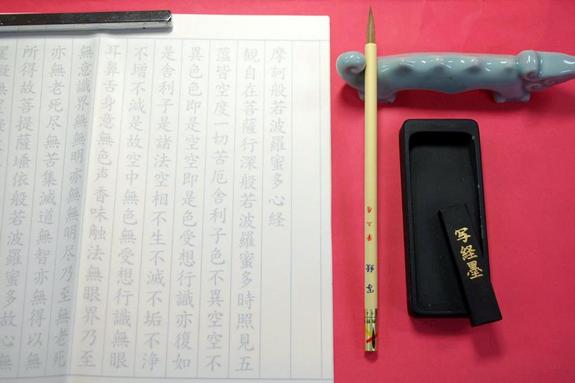 摩訶般若波羅蜜多心経
観自在菩薩行深般若波羅蜜多時照見五
蘊皆空度一切苦厄舎利子色不異空空不
異色色即是空空即是色受想行識亦復如
是舎利子是諸法空相不生不滅不垢不浄
不増不減是故空中無色無受想行識無眼
耳鼻舌身意無色声香味触法無眼界乃至
無意識界無無明亦無無明尽乃至無老死
亦無老死尽無苦集滅道無智亦無得以無
所得故菩提薩埵依般若波羅蜜多故心無
写経
写経墨